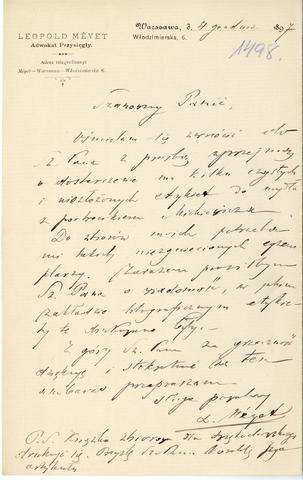 LEOPOLD MÉYET
Adwokat Przysięgły.
Adres telegraficzny:
Méyet—Warszawa—Włodzimierska 6.
Warszawa, d. 4 grudnia 1897
Włodzimierska, 6.
1498.
Szanowny Panie,
Ośmielam się zwrócić do
Sz. Pana z prośbą uprzejmą
o dostarczenie mi kilku czystych
i niezłożonych etykiet do mydła
z portrecikiem Mickiewicza
Do zbiorów moich potrzeba
mi takich niezgniecionych egzem
plarzy. Zarazem prosiłbym
Sz. Pana o wiadomość, w jakim
zakładzie litograficznym etykie-
ty te
Z góry Sz. Panu za grzeczność
dziękuję i stokrotnie za ten
ambaras przepraszam.
Sługa powolny
L. Méyet
P.S. Książka zbiorowa dla
drukuje się.
artykuł